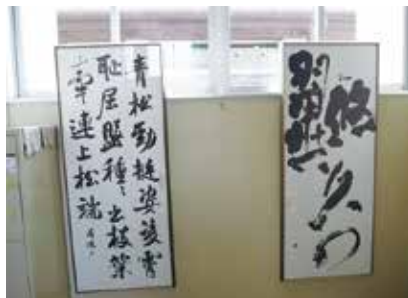 悠久
青松勁挺姿凌霄
耻屈盤種々出枝葉
牽連上松端